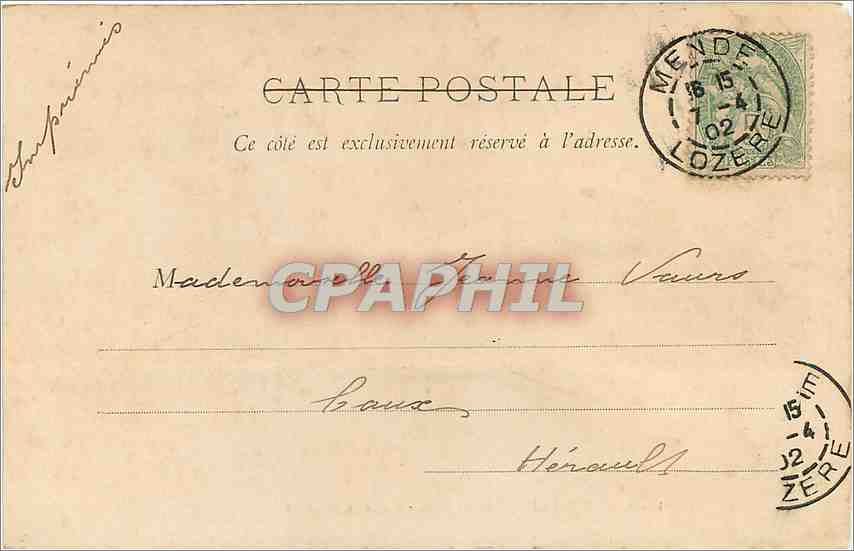 Imprimés
CARTE POSTALE
Ce côté est exclusivement réservé à l'adresse.
MENDE
16 15
7 -4
02
LOZERE
Mademoiselle Jeanne Vaurs
CPAPHIL
Caux
Hérault
E
15
-4
02
ZERE